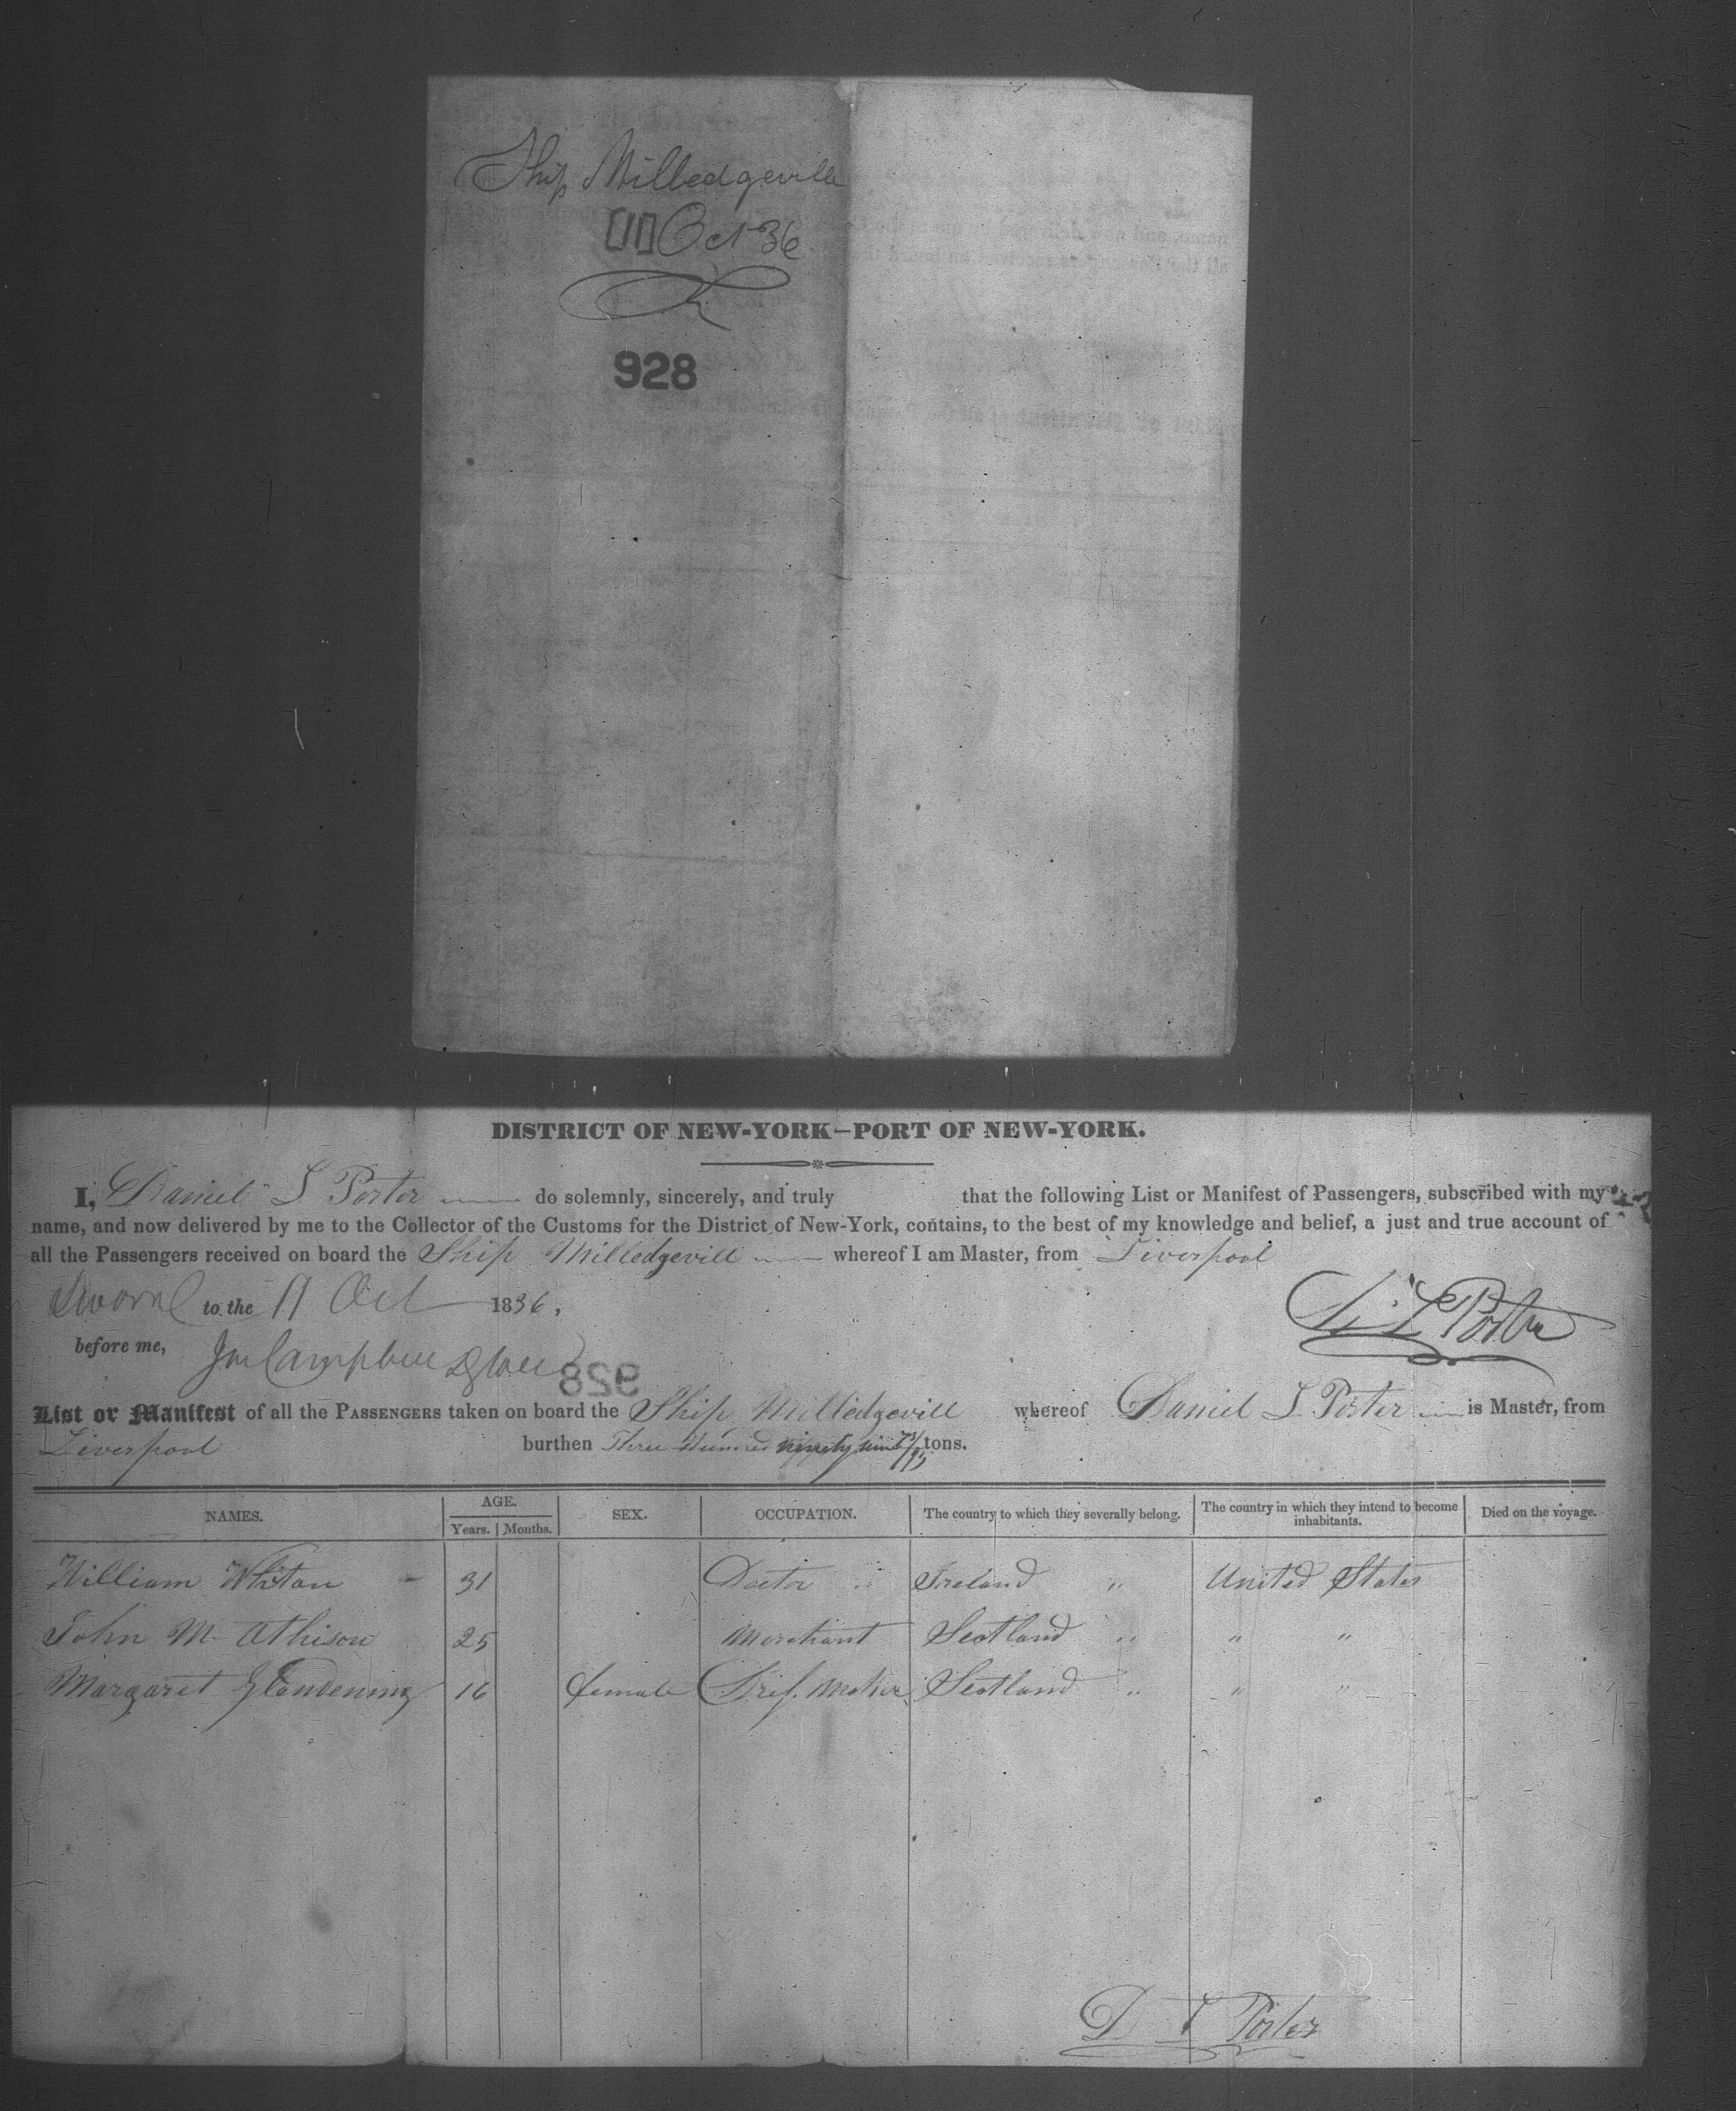 Ship Milledgeville
[11] Oct 36
928
DISTRICT OF NEW-YORK—PORT OF NEW-YORK.
I, Daniel L Porter do solemnly, sincerely, and truly that the following List or Manifest of Passengers, subscribed with my
name, and now delivered by me to the Collector of the Customs for the District of New-York, contains, to the best of my knowledge and belief, a just and true account of
all the Passengers received on board the Ship Milledgevill whereof I am Master, from Liverpool
Sworn to the 11 Oct 1836,
D. L Porter
before me, Campbell
928
List or Manifest of all the PASSENGERS taken on board the Ship Milledgevill whereof Daniel L Porter is Master, from
Liverpool burthen Three Hundred ninety nine tons.
NAMES. AGE. SEX. OCCUPATION. The country to which they severally belong. The country in which they intend to become inhabitants. Died on the voyage.
Years. Months.
William Whitan 31 Doctor Ireland " United States
John M. Athison 25 Merchant Scotland " " "
Margaret Glandening 16 female Scotland " " "
D L Porter